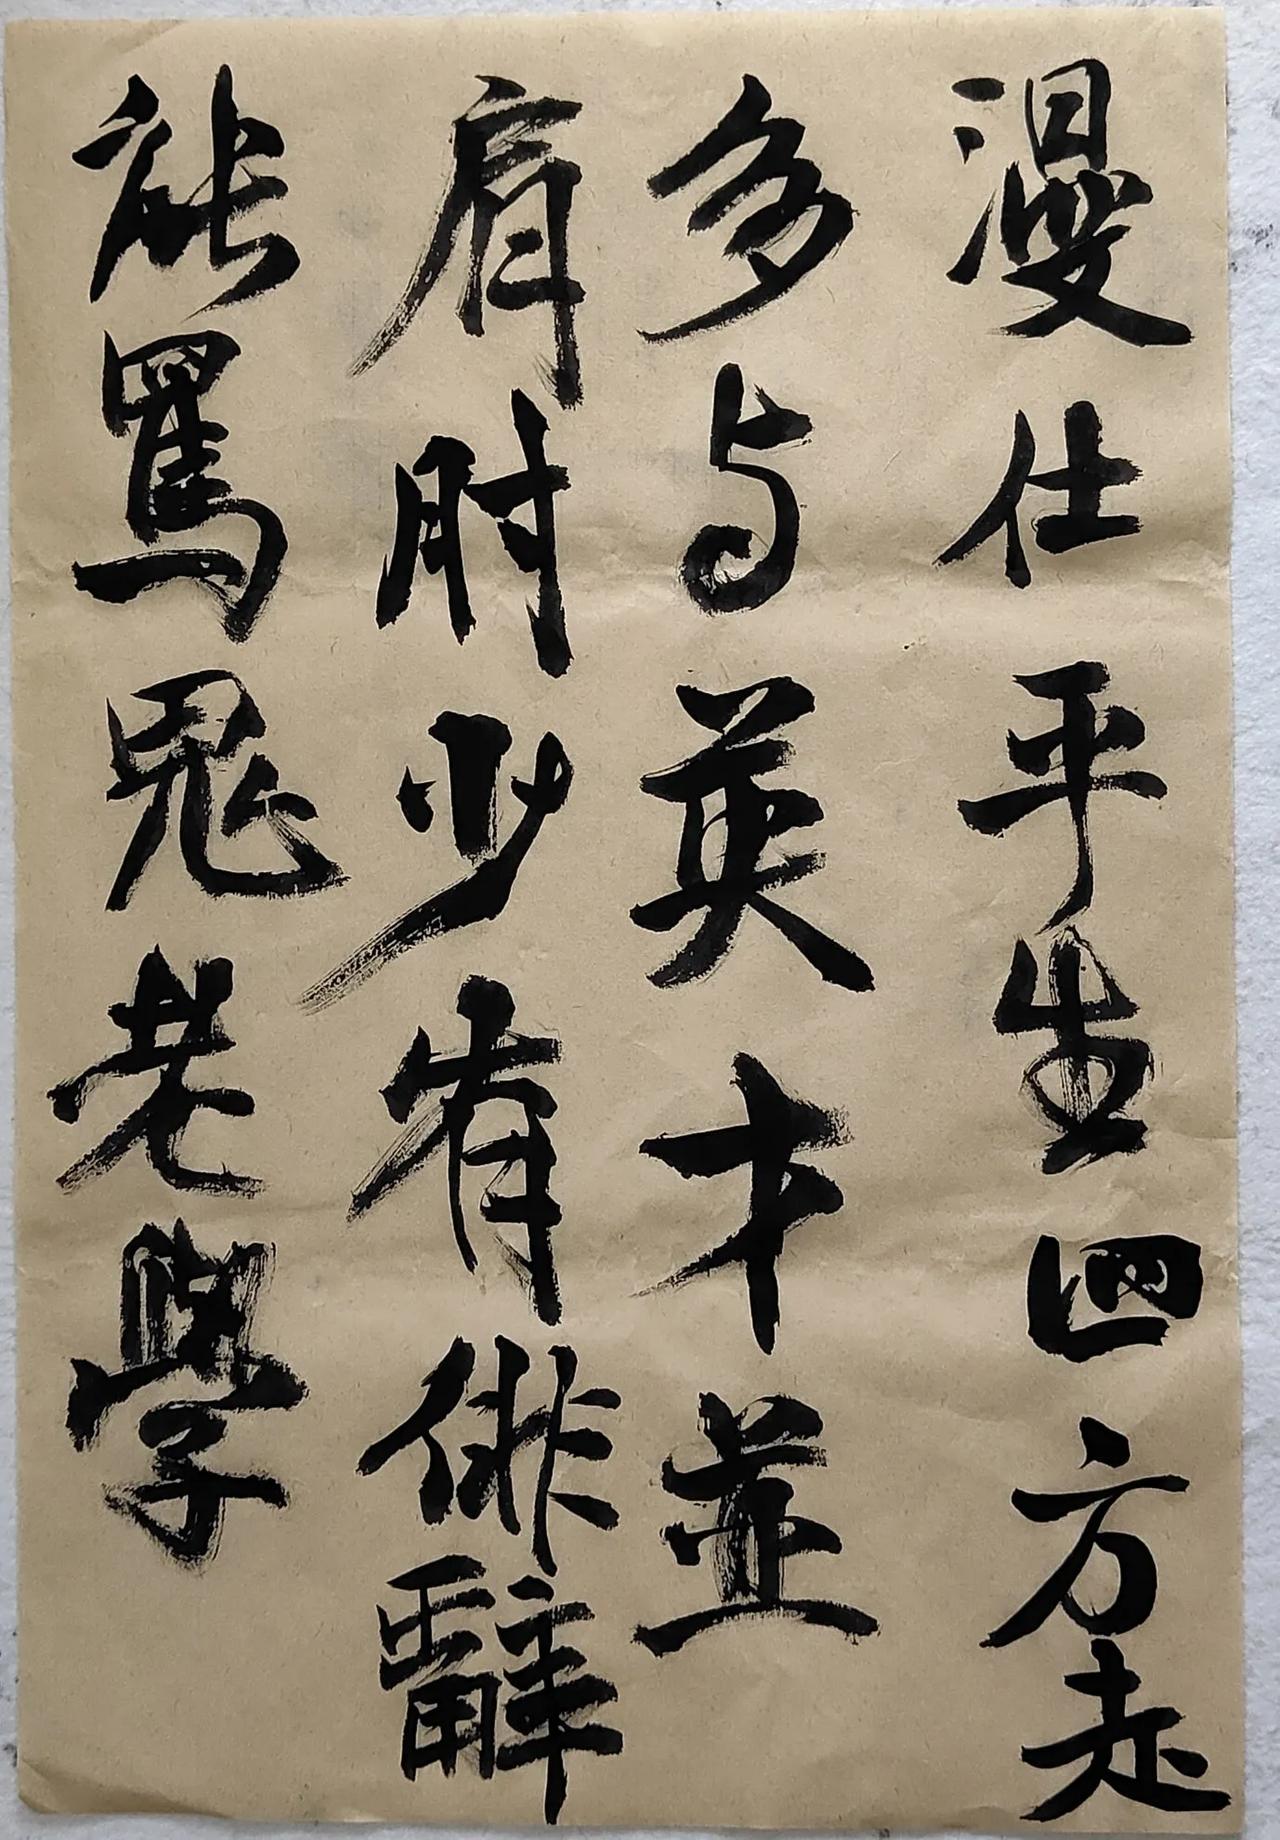 漫仕平生四方走
多与英才並
肩肘少有俳辭
能罵鬼老學